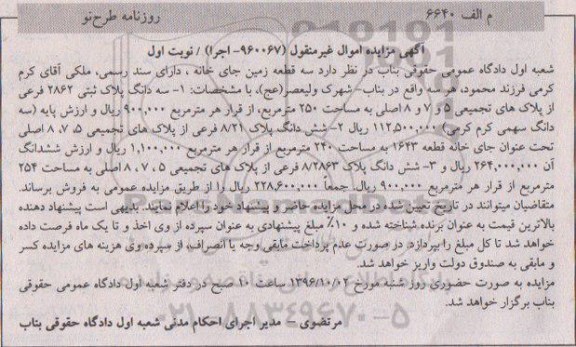 م الف ۶۶۴۰
روزنامه طرح نو
آگهی مزایده اموال غیرمنقول (۹۶۰۰۶۷- اجرا) / نوبت اول
شعبه اول دادگاه عمومی حقوقی بناب در نظر دارد سه قطعه زمین جای خانه ، دارای سند رسمی، ملکی آقای کرم
کرمی فرزند محمود، هر سه واقع در بناب- شهرک ولیعصر(عج)، با مشخصات: ۱- سه دانگ پلاک ثبتی ۲۸۶۲ فرعی
از پلاک های تجمیعی ۵ و ۷ و ۸ اصلی به مساحت ۲۵۰ مترمربع، از قرار هر مترمربع ۹۰۰,۰۰۰ ریال و ارزش پایه (سه
دانگ سهمی کرم کرمی) ۱۱۲,۵۰۰,۰۰۰ ریال ۲- شش دانگ پلاک ۸/۲۱ فرعی از پلاک های تجمیعی ۵، ۷، ۸ اصلی
تحت عنوان جای خانه قطعه ۱۶۴۳ به مساحت ۲۴۰ مترمربع از قرار هر مترمربع ۱,۱۰۰,۰۰۰ ریال و ارزش ششدانگ
آن ۲۶۴,۰۰۰,۰۰۰ ریال و ۳- شش دانگ پلاک ۸/۲۸۶۳ فرعی از پلاک های تجمیعی ۵ ، ۷ ، ۸ اصلی به مساحت ۲۵۴
مترمربع از قرار هر مترمربع ۹۰۰,۰۰۰ ریال، جمعاً ۲۲۸,۶۰۰,۰۰۰ ریال را از طریق مزایده عمومی به فروش برساند.
متقاضیان میتوانند در تاریخ تعیین شده در محل مزایده حاضر و پیشنهاد خود را اعلام نمایند. بدیهی است پیشنهاد دهنده
بالاترین قیمت به عنوان برنده شناخته شده و ۱۰٪ مبلغ پیشنهادی به عنوان سپرده از وی اخذ و تا یک ماه فرصت داده
خواهد شد تا کل مبلغ را بپردازد. در صورت عدم پرداخت مابقی وجه یا انصراف، از سپرده وی هزینه های مزایده کسر
و مابقی به صندوق دولت واریز خواهد شد.
مزایده به صورت حضوری روز شنبه مورخ ۱۳۹۶/۱۰/۰۲ ساعت ۱۰ صبح در دفتر شعبه اول دادگاه عمومی حقوقی
بناب برگزار خواهد شد.
مرتضوی – مدیر اجرای احکام مدنی شعبه اول دادگاه حقوقی بناب
۰۲۱-۸۸۳۴۹۶۷۰-۵